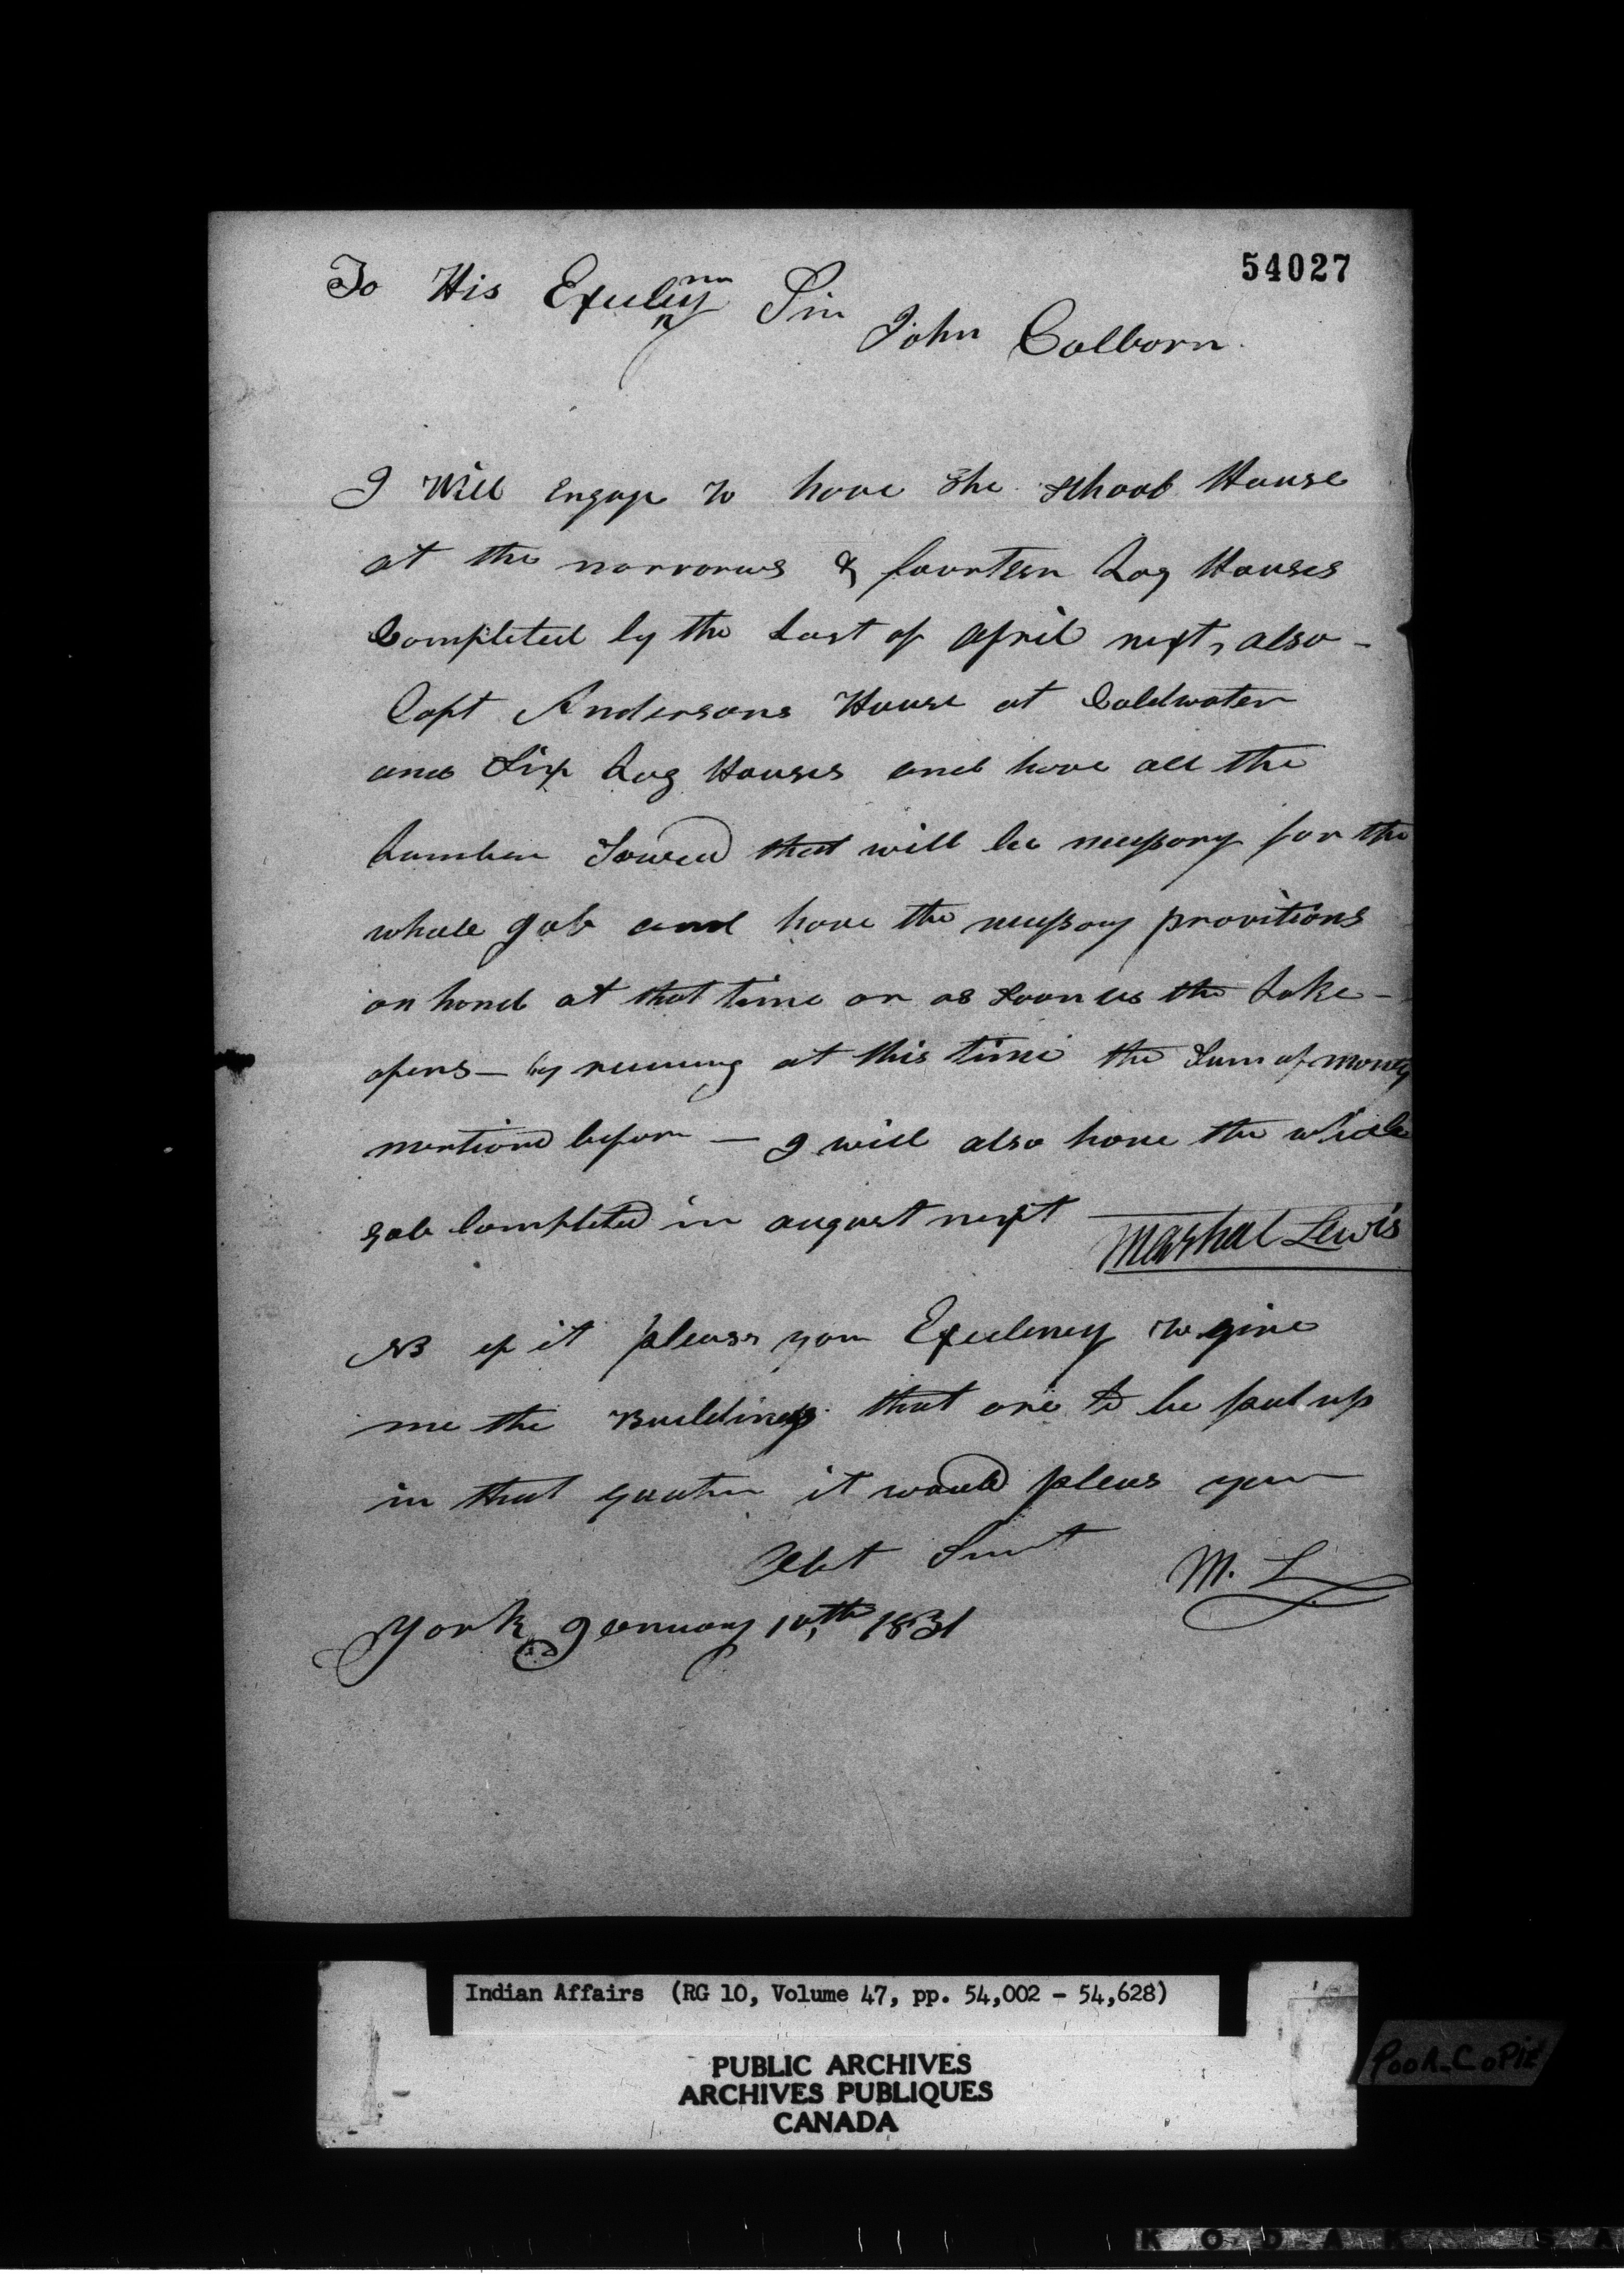 54027
To His Exculny Sir
John Colborn.
I Will Engage to have the School House
at the norrorws & fourteen Log Houses
Completed by the Last of april next, also -
Capt Andersons House at Coldwater
and Six Log Houses and have all the
Lumber Sawed that will be necessary for the
whole Job and have the necessary provitions
on hand at that time or as Soon as the Lake -
opens - by receiving at this time the Sum of money
mentiond before - I will also have the whole
Job Completed in august next
Marshal Lewis
NB if it pleass your Exculency to give
me the Buildings that are to be put up
in that quarter it would pleas your
Obt Servt
M. L
York January 10th 1831
Indian Affairs (RG 10, Volume 47, pp. 54,002 - 54,628)
PUBLIC ARCHIVES
ARCHIVES PUBLIQUES
CANADA
POOR COPIE
KODAK SA